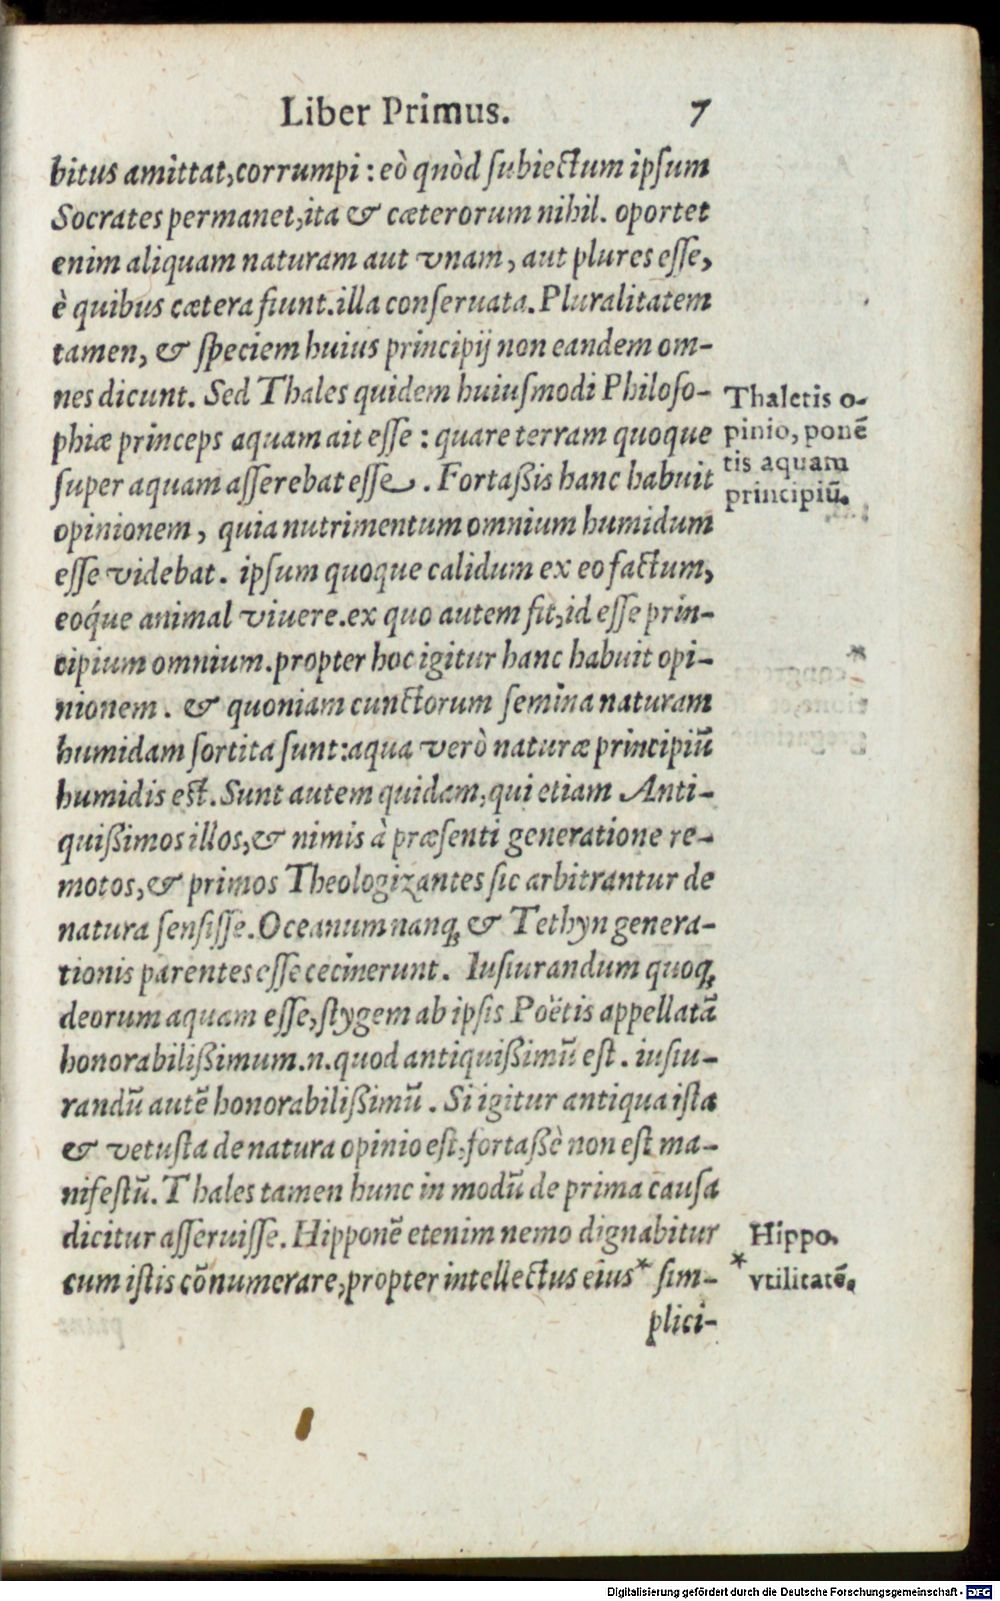 Liber Primus. 7
bitus amittat, corrumpi: eò quòd subiectum ipsum
Socrates permanet, ita & cæterorum nihil. oportet
enim aliquam naturam aut vnam, aut plures esse,
è quibus cætera fiunt. illa conseruata. Pluralitatem
tamen, & speciem huius principij non eandem om-
nes dicunt. Sed Thales quidem huiusmodi Philoso-
phiæ princeps aquam ait esse: quare terram quoque
super aquam asserebat esse. Fortaßis hanc habuit
opinionem, quia nutrimentum omnium humidum
esse videbat. ipsum quoque calidum ex eo factum,
eoq́ue animal viuere. ex quo autem fit, id esse prin-
cipium omnium. propter hoc igitur hanc habuit opi-
nionem. & quoniam cunctorum semina naturam
humidam sortita sunt: aqua verò naturæ principiũ
humidis est. Sunt autem quidam, qui etiam Anti-
quißimos illos, & nimis à præsenti generatione re-
motos, & primos Theologizantes sic arbitrantur de
natura sensisse. Oceanum nanq; & Tethyn genera-
tionis parentes esse cecinerunt. Iusiurandum quoq;
deorum aquam esse, stygem ab ipsis Poëtis appellatã
honorabilißimum.n. quod antiquißimũ est. iusiu-
randũ autẽ honorabilißimũ. Si igitur antiqua ista
& vetusta de natura opinio est, fortaßè non est ma-
nifestũ. Thales tamen hunc in modũ de prima causa
dicitur asseruisse. Hipponẽ etenim nemo dignabitur
cum istis cõnumerare, propter intellectus eius* sim-
plici-
Thaletis o-
pinio, ponẽ
tis aquam
principiũ.
Hippo.
* vtilitatẽ.
Digitalisierung gefördert durch die Deutsche Forschungsgemeinschaft - DFG